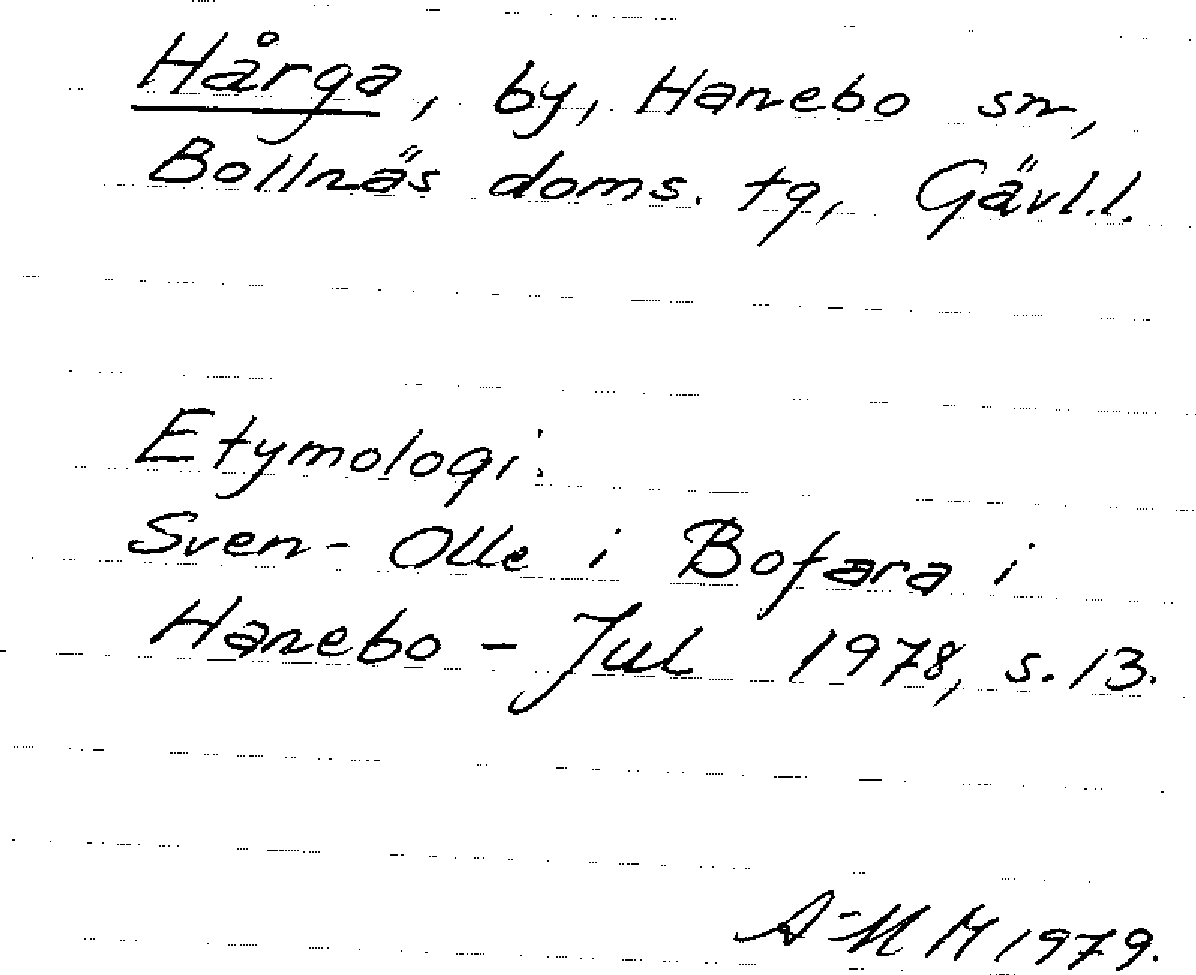 Hårga, by, Hanebo sn,
Bollnäs doms. tg, Gävl.l.
Etymologi:
Sven-Olle i Bofara i
Hanebo - Jul 1978, s. 13.
A-M H 1979.